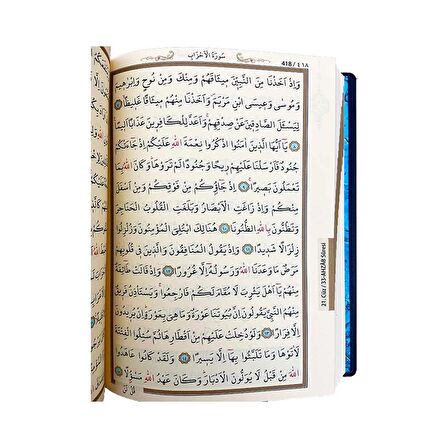 سُورَةُ الْاَحْزَابِ
418 / ٤١٨
وَاِذْ اَخَذْنَا مِنَ النَّبِيّٖنَ مٖيثَاقَهُمْ وَمِنْكَ وَمِنْ نُوحٍ وَاِبْرٰهٖيمَ
وَمُوسٰى وَعٖيسَى ابْنِ مَرْيَمَ وَاَخَذْنَا مِنْهُمْ مٖيثَاقًا غَلٖيظًا ٧
لِيَسْـَٔلَ الصَّادِقٖينَ عَنْ صِدْقِهِمْ وَاَعَدَّ لِلْكَافِرٖينَ عَذَابًا اَلٖيمًا ٨
يَٓا اَيُّهَا الَّذٖينَ اٰمَنُوا اذْكُرُوا نِعْمَةَ اللّٰهِ عَلَيْكُمْ اِذْ جَٓاءَتْكُمْ
جُنُودٌ فَاَرْسَلْنَا عَلَيْهِمْ رٖيحًا وَجُنُودًا لَمْ تَرَوْهَا وَكَانَ اللّٰهُ بِمَا
تَعْمَلُونَ بَصٖيرًا ٩ اِذْ جَٓاؤُ۫كُمْ مِنْ فَوْقِكُمْ وَمِنْ اَسْفَلَ
مِنْكُمْ وَاِذْ زَاغَتِ الْاَبْصَارُ وَبَلَغَتِ الْقُلُوبُ الْحَنَاجِرَ
وَتَظُنُّونَ بِاللّٰهِ الظُّنُونَا ١٠ هُنَالِكَ ابْتُلِيَ الْمُؤْمِنُونَ وَزُلْزِلُوا
زِلْزَالًا شَدٖيدًا ١١ وَاِذْ يَقُولُ الْمُنَافِقُونَ وَالَّذٖينَ فٖي قُلُوبِهِمْ
مَرَضٌ مَا وَعَدَنَا اللّٰهُ وَرَسُولُهُٓ اِلَّا غُرُورًا ١٢ وَاِذْ قَالَتْ طَٓائِفَةٌ
مِنْهُمْ يَٓا اَهْلَ يَثْرِبَ لَا مُقَامَ لَكُمْ فَارْجِعُوا وَيَسْتَأْذِنُ فَرٖيقٌ
مِنْهُمُ النَّبِيَّ يَقُولُونَ اِنَّ بُيُوتَنَا عَوْرَةٌ وَمَا هِيَ بِعَوْرَةٍ اِنْ يُرٖيدُونَ
اِلَّا فِرَارًا ١٣ وَلَوْ دُخِلَتْ عَلَيْهِمْ مِنْ اَقْطَارِهَا ثُمَّ سُئِلُوا الْفِتْنَةَ
لَاٰتَوْهَا وَمَا تَلَبَّثُوا بِهَٓا اِلَّا يَسٖيرًا ١٤ وَلَقَدْ كَانُوا عَاهَدُوا
اللّٰهَ مِنْ قَبْلُ لَا يُوَلُّونَ الْاَدْبَارَ وَكَانَ عَهْدُ اللّٰهِ مَسْؤُ۫لًا ١٥
قُلْ لَنْ
21. Cüz / 33-AHZÂB Sûresi